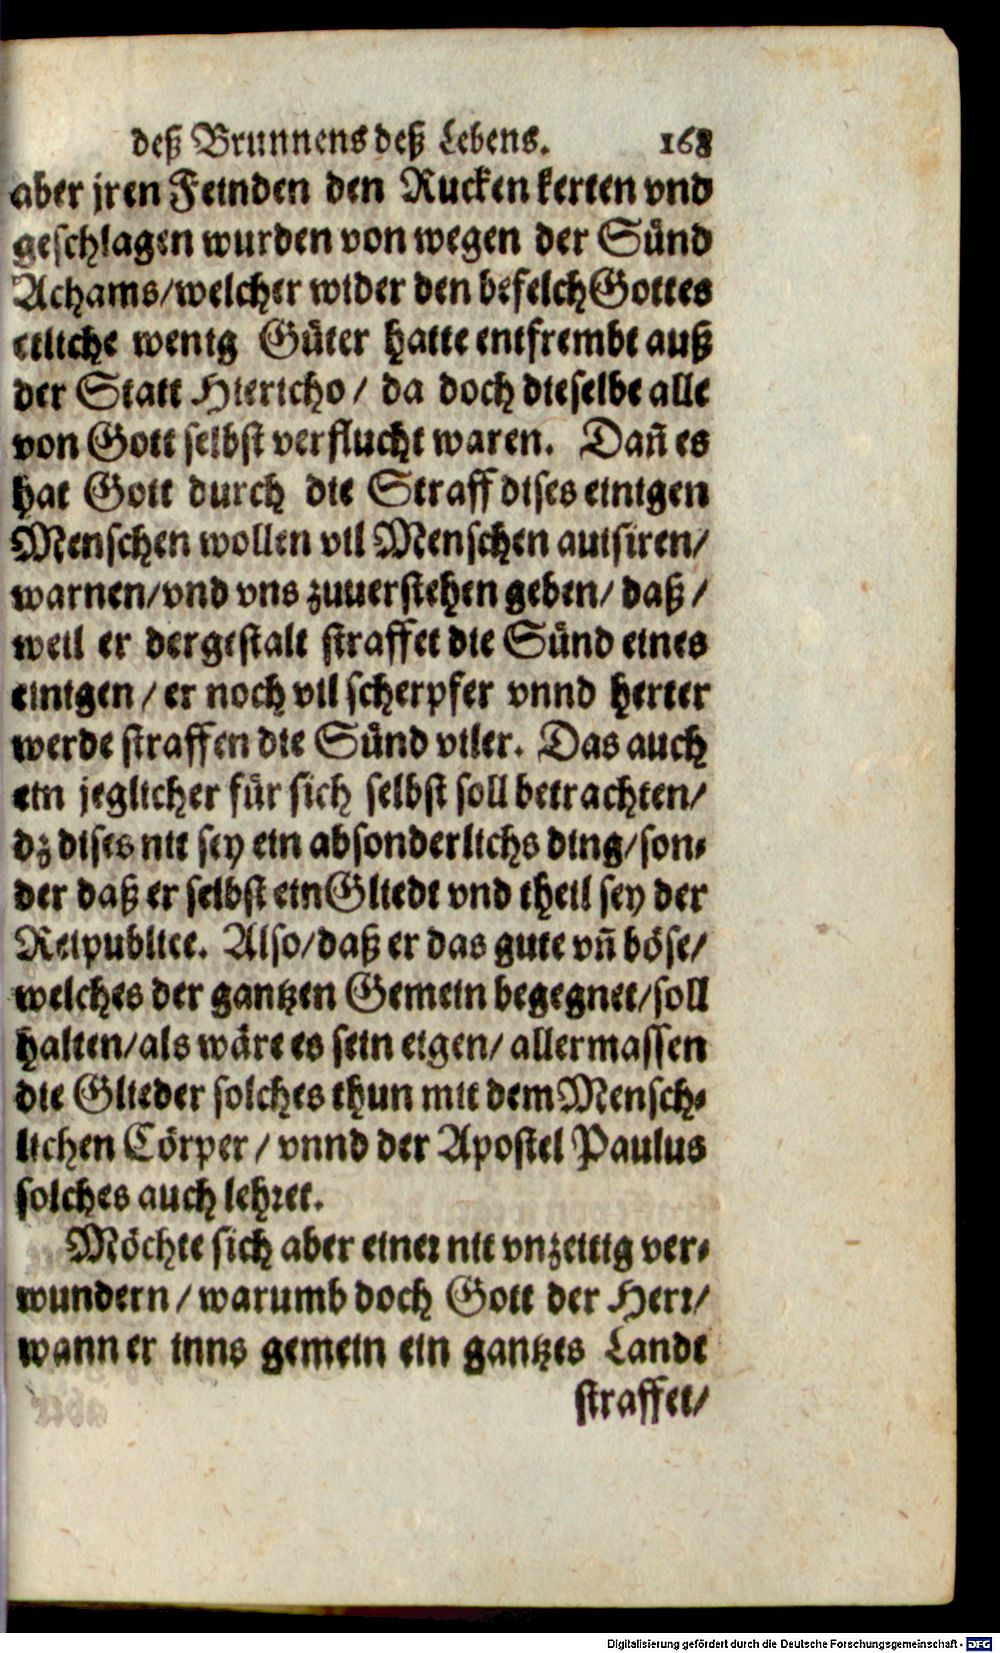 deß Brunnens deß Lebens. 168
aber jren Feinden den Rucken kerten vnd
geschlagen wurden von wegen der Sünd
Achams/welcher wider den befelch Gottes
etliche wenig Güter hatte entfrembt auß
der Statt Hiericho/ da doch dieselbe alle
von Gott selbst verflucht waren. Dañ es
hat Gott durch die Straff dises einigen
Menschen wollen vil Menschen auisiren/
warnen/vnd vns zuuerstehen geben/ daß/
weil er dergestalt straffet die Sünd eines
einigen/ er noch vil scherpfer vnnd herter
werde straffen die Sünd viler. Das auch
ein jeglicher für sich selbst soll betrachten/
dz dises nit sey ein absonderlichs ding/son-
der daß er selbst ein Gliedt vnd theil sey der
Reipublice. Also/daß er das gute vñ böse/
welches der gantzen Gemein begegnet/soll
halten/als wäre es sein eigen/ allermassen
die Glieder solches thun mit dem Mensch-
lichen Cörper/ vnnd der Apostel Paulus
solches auch lehret.
Möchte sich aber einer nit vnzeitig ver-
wundern/ warumb doch Gott der Herr/
wann er inns gemein ein gantzes Landt
straffet/
Digitalisierung gefördert durch die Deutsche Forschungsgemeinschaft - DFG